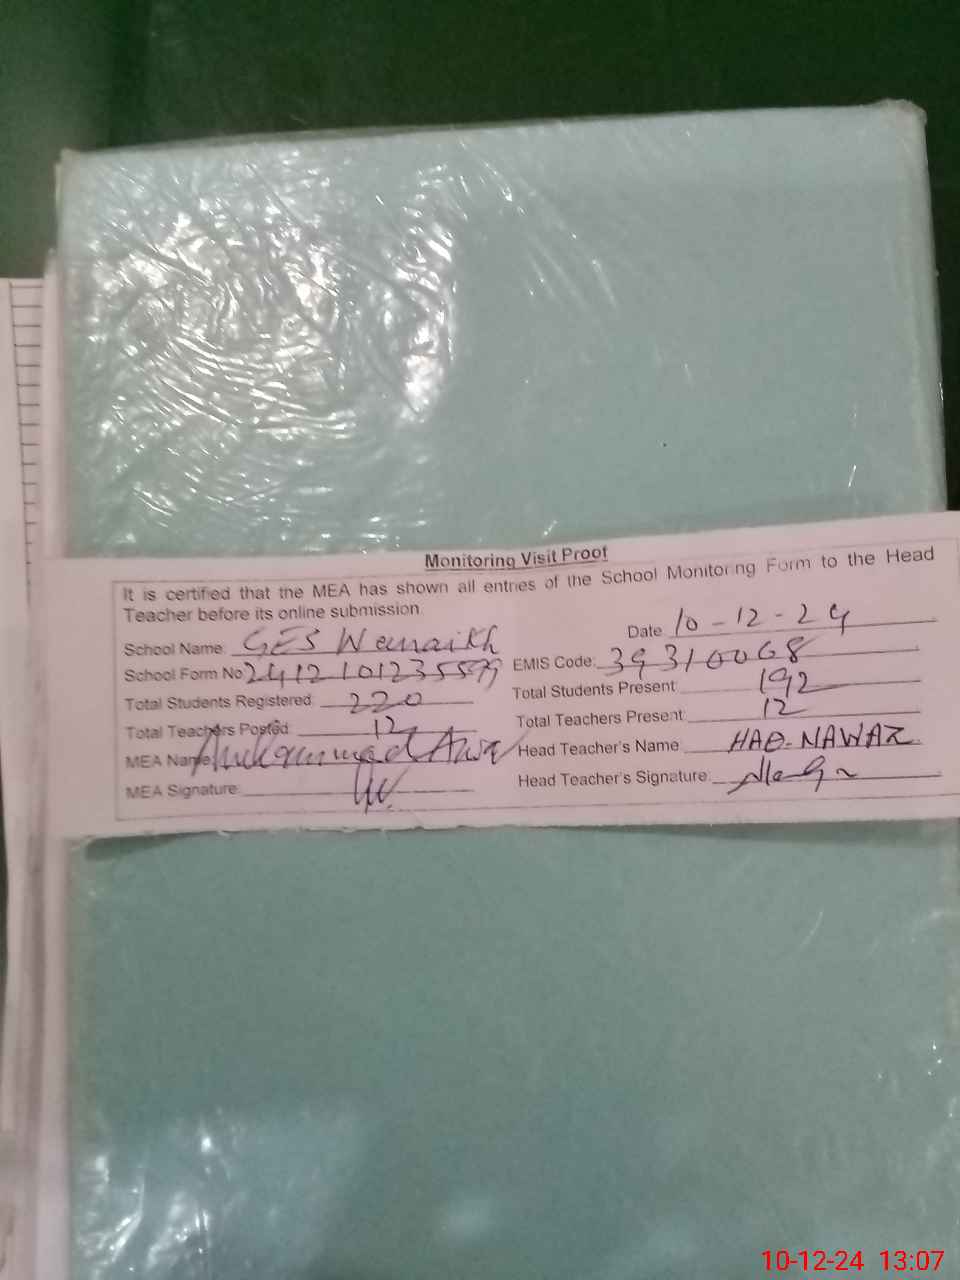 Monitoring Visit Proof
It is certified that the MEA has shown all entries of the School Monitoring Form to the Head
Teacher before its online submission.
Date 10-12-24
School Name: GES
School Form No 2412101235599
EMIS Code: 39310068
Total Students Registered: 220
Total Students Present: 192
Total Teachers Posted: 12
Total Teachers Present: 12
MEA Name: Muhammad
Head Teacher's Name: HAQ-NAWAZ
MEA Signature:
Head Teacher's Signature:
10-12-24 13:07